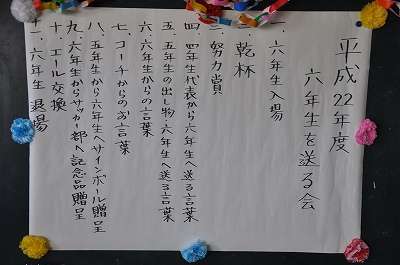 平成22年度
六年生を送る会
一、六年生入場
二、乾杯
三、努力賞
四、四年生代表から六年生へ送る言葉
五、五年生の出し物・六年生へ送る言葉
六、六年生からの言葉
七、コーチからのお言葉
八、五年生から六年生へサインボール贈呈
九、六年生からサッカー部へ記念品贈呈
十、エール交換
十一、六年生退場